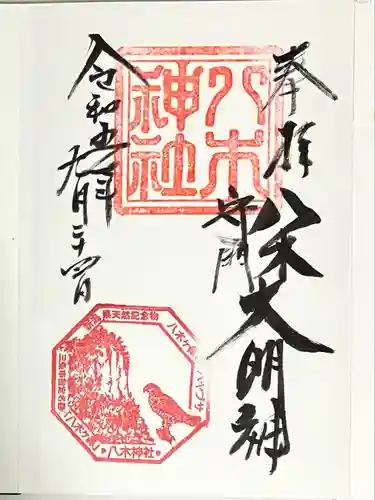 奉拝
八木神社
守門
八木大明神
令和五年
九月二十四日
新潟県天然記念物
八木神社